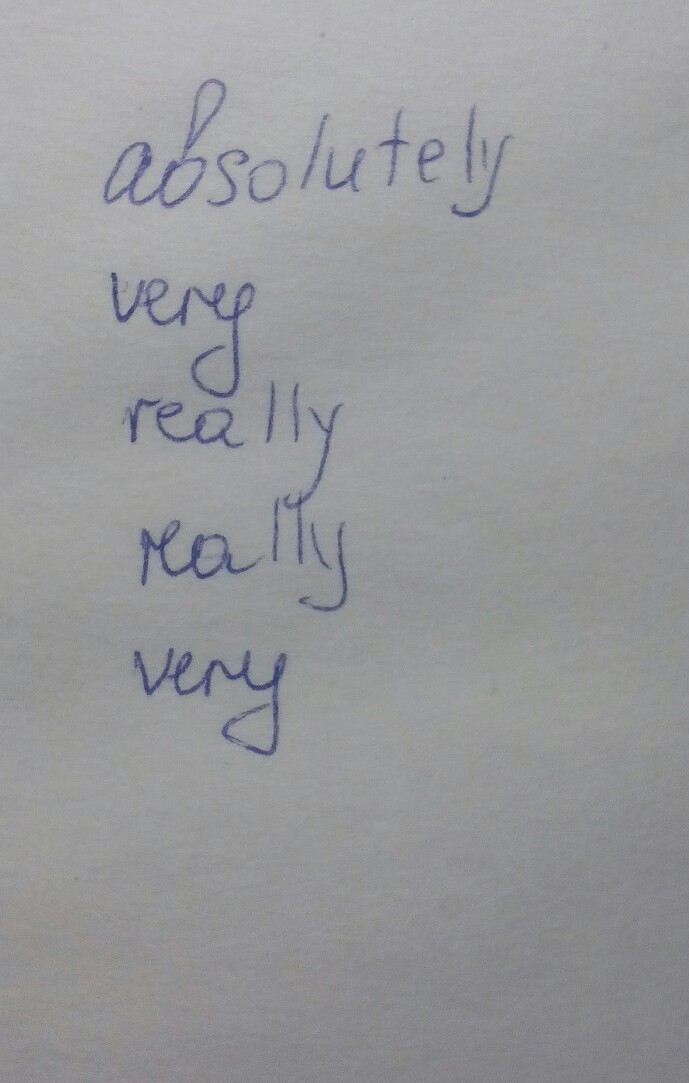 absolutely
very
really
really
very